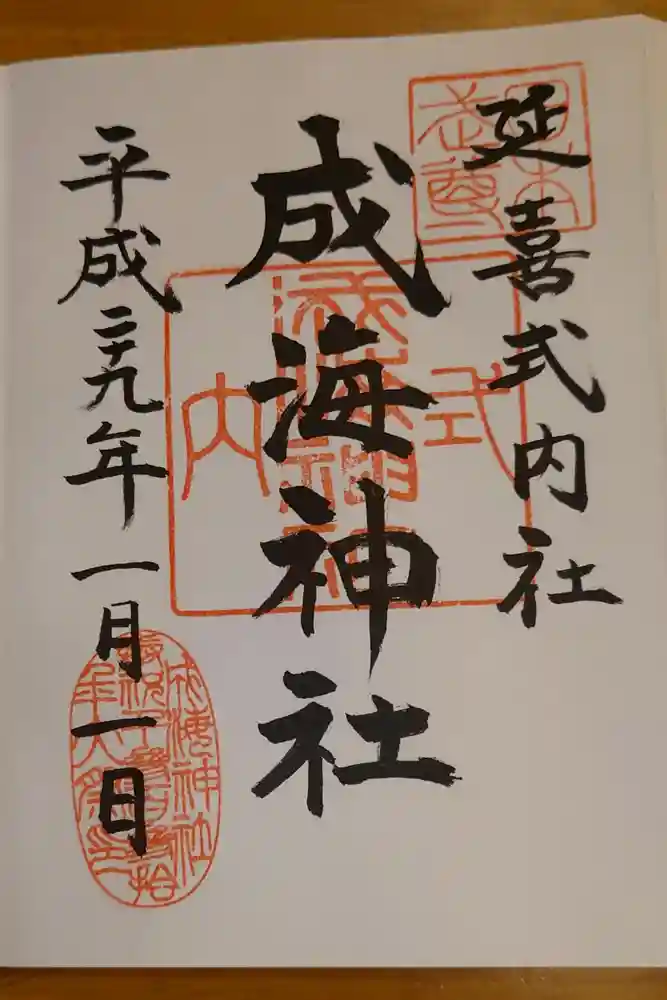 延喜式内社
成海神社
平成二十九年一月一日
式
内
成海神社
成海神社